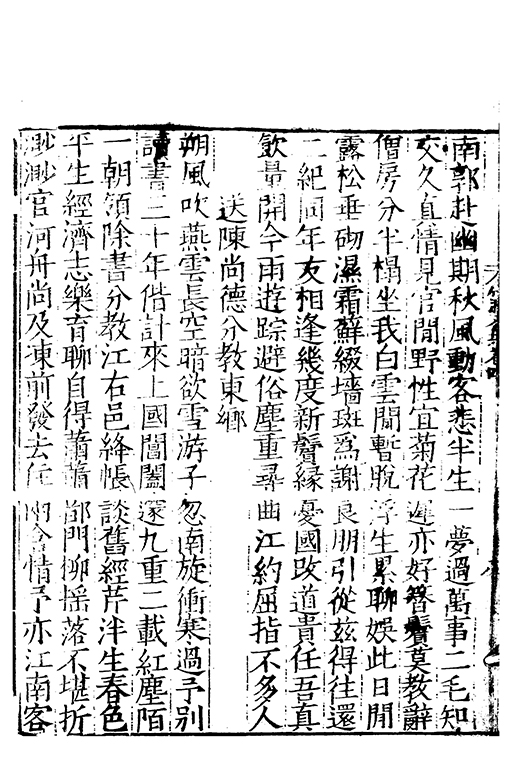 南郭赴幽期秋風動客悲半生一夢過萬事二毛知
交久真情見官閒野性宜菊花遲亦好簪鬢莫教辭
僧房分半榻坐我白雲間暫脫浮生累聊娛此日閒
露松垂砌濕霜蘚綴墻斑爲謝良朋引從茲得往還
二紀同年友相逢幾度新鬢緣憂國改道貴任吾真
飲量開今雨遊踪避俗塵重尋曲江約屈指不多人
送陳尚德分教東鄉
朔風吹燕雲長空暗欲雪游子忽南旋衝寒過予別
讀書二十年偕計來上國閶闔還九重二載紅塵陌
一朝領除書分教江右邑絳帳談舊經芹泮生春色
平生經濟志樂育聊自得蕭蕭都門柳搖落不堪折
渺渺官河舟尚及凍前發去住兩含情予亦江南客